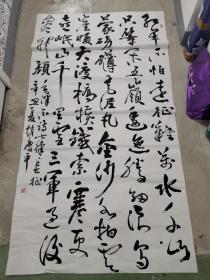 紅軍不怕遠征難萬水千山
只等閒五嶺逶迤騰細浪烏
蒙磅礴走泥丸金沙水拍雲
崖暖大渡橋橫鐵索寒更
喜岷山千里雪三軍過後
盡開顏 毛澤東詩七律長征
辛丑夏